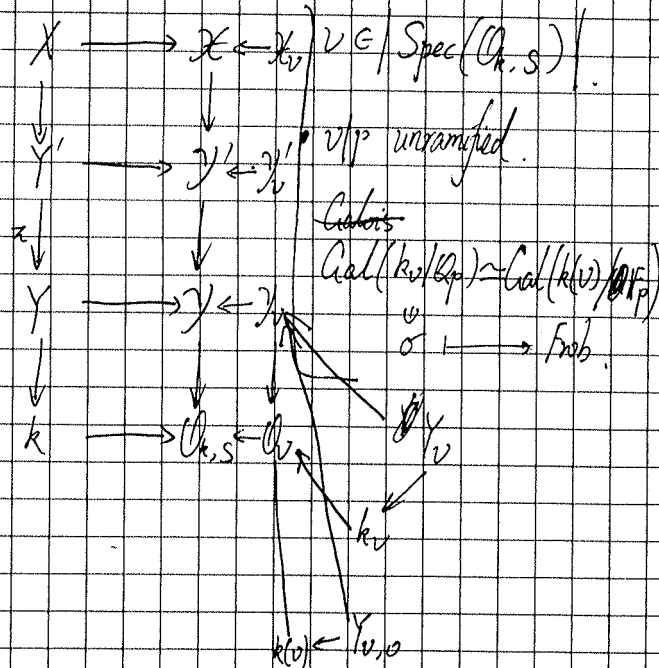 X → 𝒳 ← 𝒳_v v ∈ |Spec(𝒪_{k,S})|.
Y' → 𝒴' ← 𝒴'_v v|p unramified.
π
Gal(k_v/ℚ_p) ≃ Gal(k(v)/𝔽_p)
Y → 𝒴 ← 𝒴_v σ ↦ Frob.
k → 𝒪_{k,S} ← 𝒪_v Y_v
k_v
k(v) ← Y_{v,0}